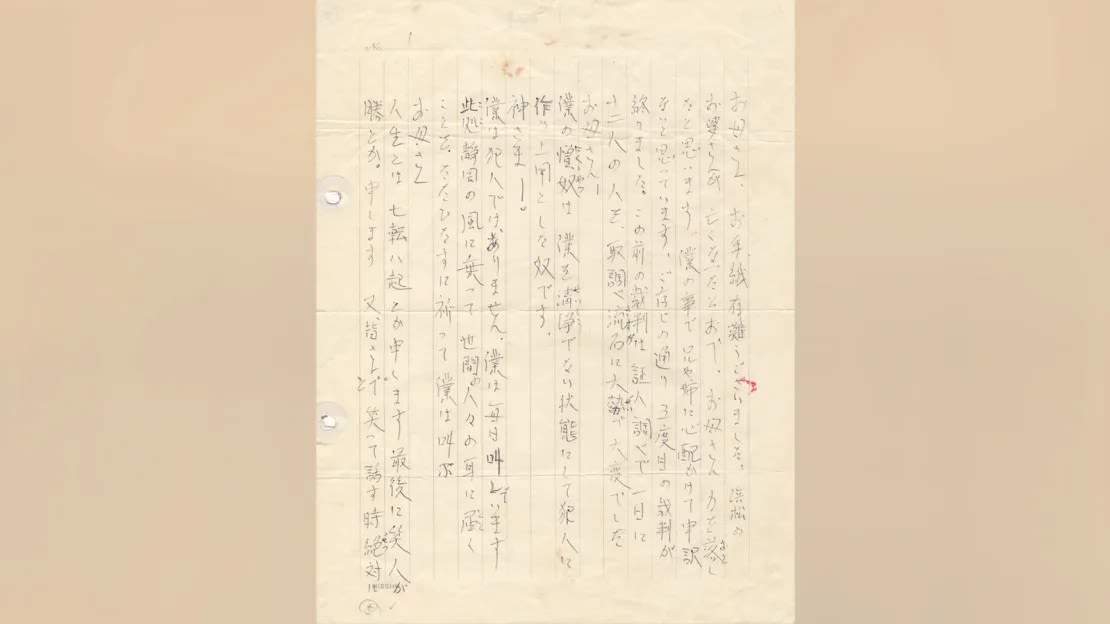 お母さん、お手紙有難うございました。浜松の
お婆さんが亡くなったそおで、お母さん力を落し
たと思います。僕の事で兄や姉に心配かけて申訳
ないと思っています。ご存じの通り 3度目の裁判が
終りました。この前の裁判は 証人調べで 一日に
十二人の人を、取調べ流石に大勢で大変でした
お母さん!
僕の憎奴は 僕を清浄でない状態にして犯人に
作り上用とした奴です。
神さま―!。
僕は犯人では、ありません、僕は毎日叫んでいます
此処静岡の風に乗って 世間の人々の耳に届く
ことを、ただひたすらに祈って 僕は叫ぶ
お母さん
人生とは 七転八起 とか申します 最後に笑う人が
勝とか。申します 又、皆さんと 笑って話す時絶対に